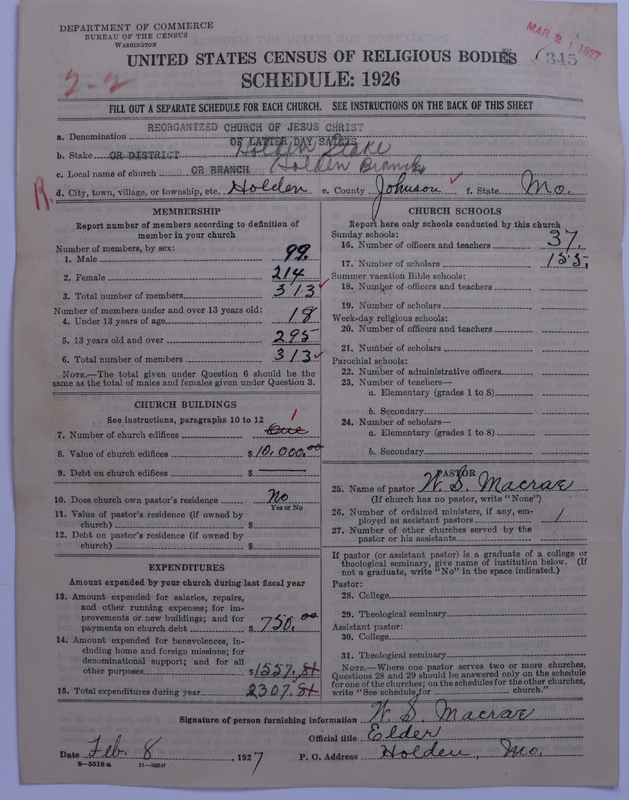 DEPARTMENT OF COMMERCE
BUREAU OF THE CENSUS
WASHINGTON
MAR 21 1927
UNITED STATES CENSUS OF RELIGIOUS BODIES
345
SCHEDULE: 1926
2-2
FILL OUT A SEPARATE SCHEDULE FOR EACH CHURCH. SEE INSTRUCTIONS ON THE BACK OF THIS SHEET
REORGANIZED CHURCH OF JESUS CHRIST
a. Denomination
OF LATTER DAY SAINTS
b. Stake OR DISTRICT Holden Stake
c. Local name of church OR BRANCH Holden Branch
R. d. City, town, village, or township, etc. Holden e. County Johnson f. State Mo.
MEMBERSHIP
Report number of members according to definition of
member in your church
Number of members, by sex:
1. Male 99.
2. Female 214
3. Total number of members 313
Number of members under and over 13 years old:
4. Under 13 years of age 18
5. 13 years old and over 295
6. Total number of members 313
NOTE.—The total given under Question 6 should be
same as the total of males and females given under Question 3.
CHURCH BUILDINGS
See instructions, paragraphs 10 to 12 1
7. Number of church edifices One
8. Value of church edifices $10,000.00
9. Debt on church edifices $
10. Does church own pastor's residence No
Yes or No
11. Value of pastor's residence (if owned by
church) $
12. Debt on pastor's residence (if owned by
church) $
EXPENDITURES
Amount expended by your church during last fiscal year
13. Amount expended for salaries, repairs,
and other running expenses; for im-
provements or new buildings; and for
payments on church debt $ 750.00
14. Amount expended for benevolences, in-
cluding home and foreign missions; for
denominational support; and for all
other purposes $1557.81
15. Total expenditures during year 2307.81
CHURCH SCHOOLS
Report here only schools conducted by this church
Sunday schools:
16. Number of officers and teachers 37.
17. Number of scholars 155.
Summer vacation Bible schools:
18. Number of officers and teachers
19. Number of scholars
Week-day religious schools:
20. Number of officers and teachers
21. Number of scholars
Parochial schools:
22. Number of administrative officers
23. Number of teachers—
a. Elementary (grades 1 to 8)
b. Secondary
24. Number of scholars—
a. Elementary (grades 1 to 8)
b. Secondary
PASTOR
25. Name of pastor W. S. Macrae
(If church has no pastor, write "None")
26. Number of ordained ministers, if any, em-
ployed as assistant pastors 1
27. Number of other churches served by the
pastor or his assistants
If pastor (or assistant pastor) is a graduate of a college or
theological seminary, give name of institution below. (If
not a graduate, write "No" in the space indicated.)
Pastor:
28. College
29. Theological seminary
Assistant pastor:
30. College
31. Theological seminary
NOTE.—Where one pastor serves two or more churches,
Questions 28 and 29 should be answered only on the schedule
for one of the churches; on the schedules for the other churches,
write "See schedule for church."
Signature of person furnishing information W. S. Macrae
Official title Elder
Date Feb. 8, 1927 P. O. Address Holden, Mo.
8—5318 a